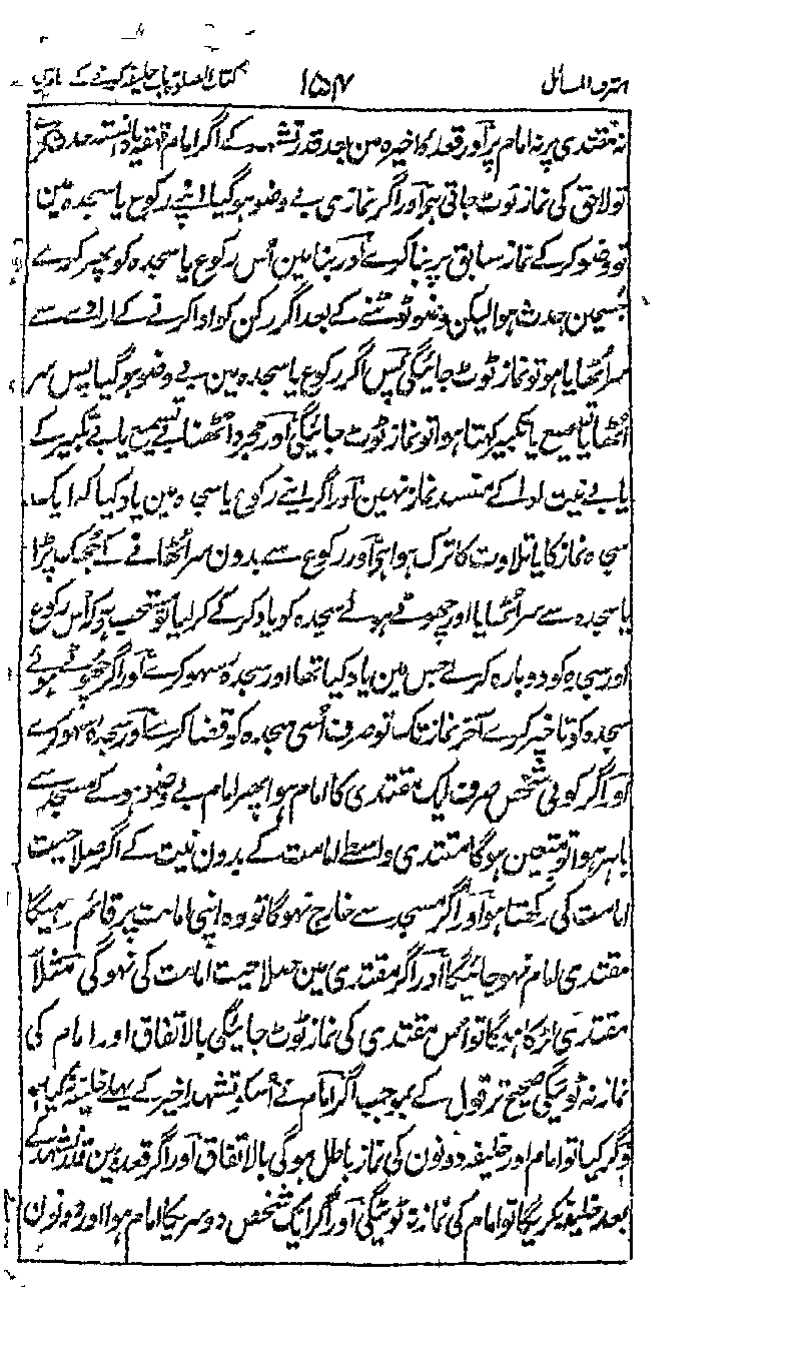 اشرف المسائل ۱۵۴ کتاب الصلوۃ باب خلیفہ کرنے کے
نہ مقتدی پر نہ امام پر آور قعدہ اخیرہ مین بعد قدر تشہد کے اگر امام قہقہہ یا دانستہ حدث کرے
تو لاحق کی نماز ٹوٹ جاتی ہو آور اگر نمازی بے وضو ہو گیا اپنے رکوع یا سجدہ مین
تو وضو کر کے نماز سابق پر بنا کرے آور بنا مین اُس رکوع یا سجدہ کو پھر کرے
جسمین حدث ہوا لیکن وضو ٹوٹنے کے بعد اگر رکن کو ادا کرنے کے ارادہ سے
سر اُٹھایا ہو تو نماز ٹوٹ جائیگی پس اگر رکوع یا سجدہ مین بے وضو ہو گیا پس سر
اُٹھایا تسمیع یا تکبیر کہتا ہوا تو نماز ٹوٹ جائیگی آور مجرد اُٹھنا بے تسمیع یا بے تکبیر کے
یا بے نیت ادا کے مفسد نماز نہین آور اگر اپنے رکوع یا سجدہ مین یاد کیا کہ ایک
سجدہ نماز کا یا تلاوت کا ترک ہوا ہو آور رکوع سے بدون سر اُٹھانے کے جھک پڑا
یا سجدہ سے سر اُٹھایا اور چھوٹے ہوئے سجدہ کو یاد کر کے کر لیا تو مستحب ہو کہ اُس رکوع
اور سجدہ کو دوبارہ کر لے جس مین یاد کیا تھا اور سجدہ سہو کرے آور اگر چھوٹے ہوئے
سجدہ کو تاخیر کرے آخر نماز تک تو صرف اُسی سجدہ کو قضا کرے آور سجدہ سہو کرے
آور اگر کوئی شخص صرف ایک مقتدی کا امام ہوا پھر امام بے وضو ہو کے مسجد سے
باہر ہوا تو متعین ہوگا مقتدی واسطے امامت کے بدون نیت کے اگر صلاحیت
امامت کی رکھتا ہو آور اگر مسجد سے خارج نہوگا تو وہ اپنی امامت پر قائم رہیگا
مقتدی امام نہو جائیگا آور اگر مقتدی مین صلاحیت امامت کی نہوگی مثلاً
مقتدی لڑکا ہوگا تو اُس مقتدی کی نماز ٹوٹ جائیگی بالاتفاق اور امام کی
نماز نہ ٹوٹیگی صحیح تر قول کے بموجب اگر امام نے اُسکو تشہد اخیر کے پہلے خلیفہ نکیا ہو
وگر کیا تو امام اور خلیفہ دونون کی نماز باطل ہوگی بالاتفاق آور اگر قعدہ مین قدر تشہد کے
بعد خلیفہ کریگا تو امام کی نماز نہ ٹوٹیگی آور اگر ایک شخص دوسریکا امام ہوا اور دونون